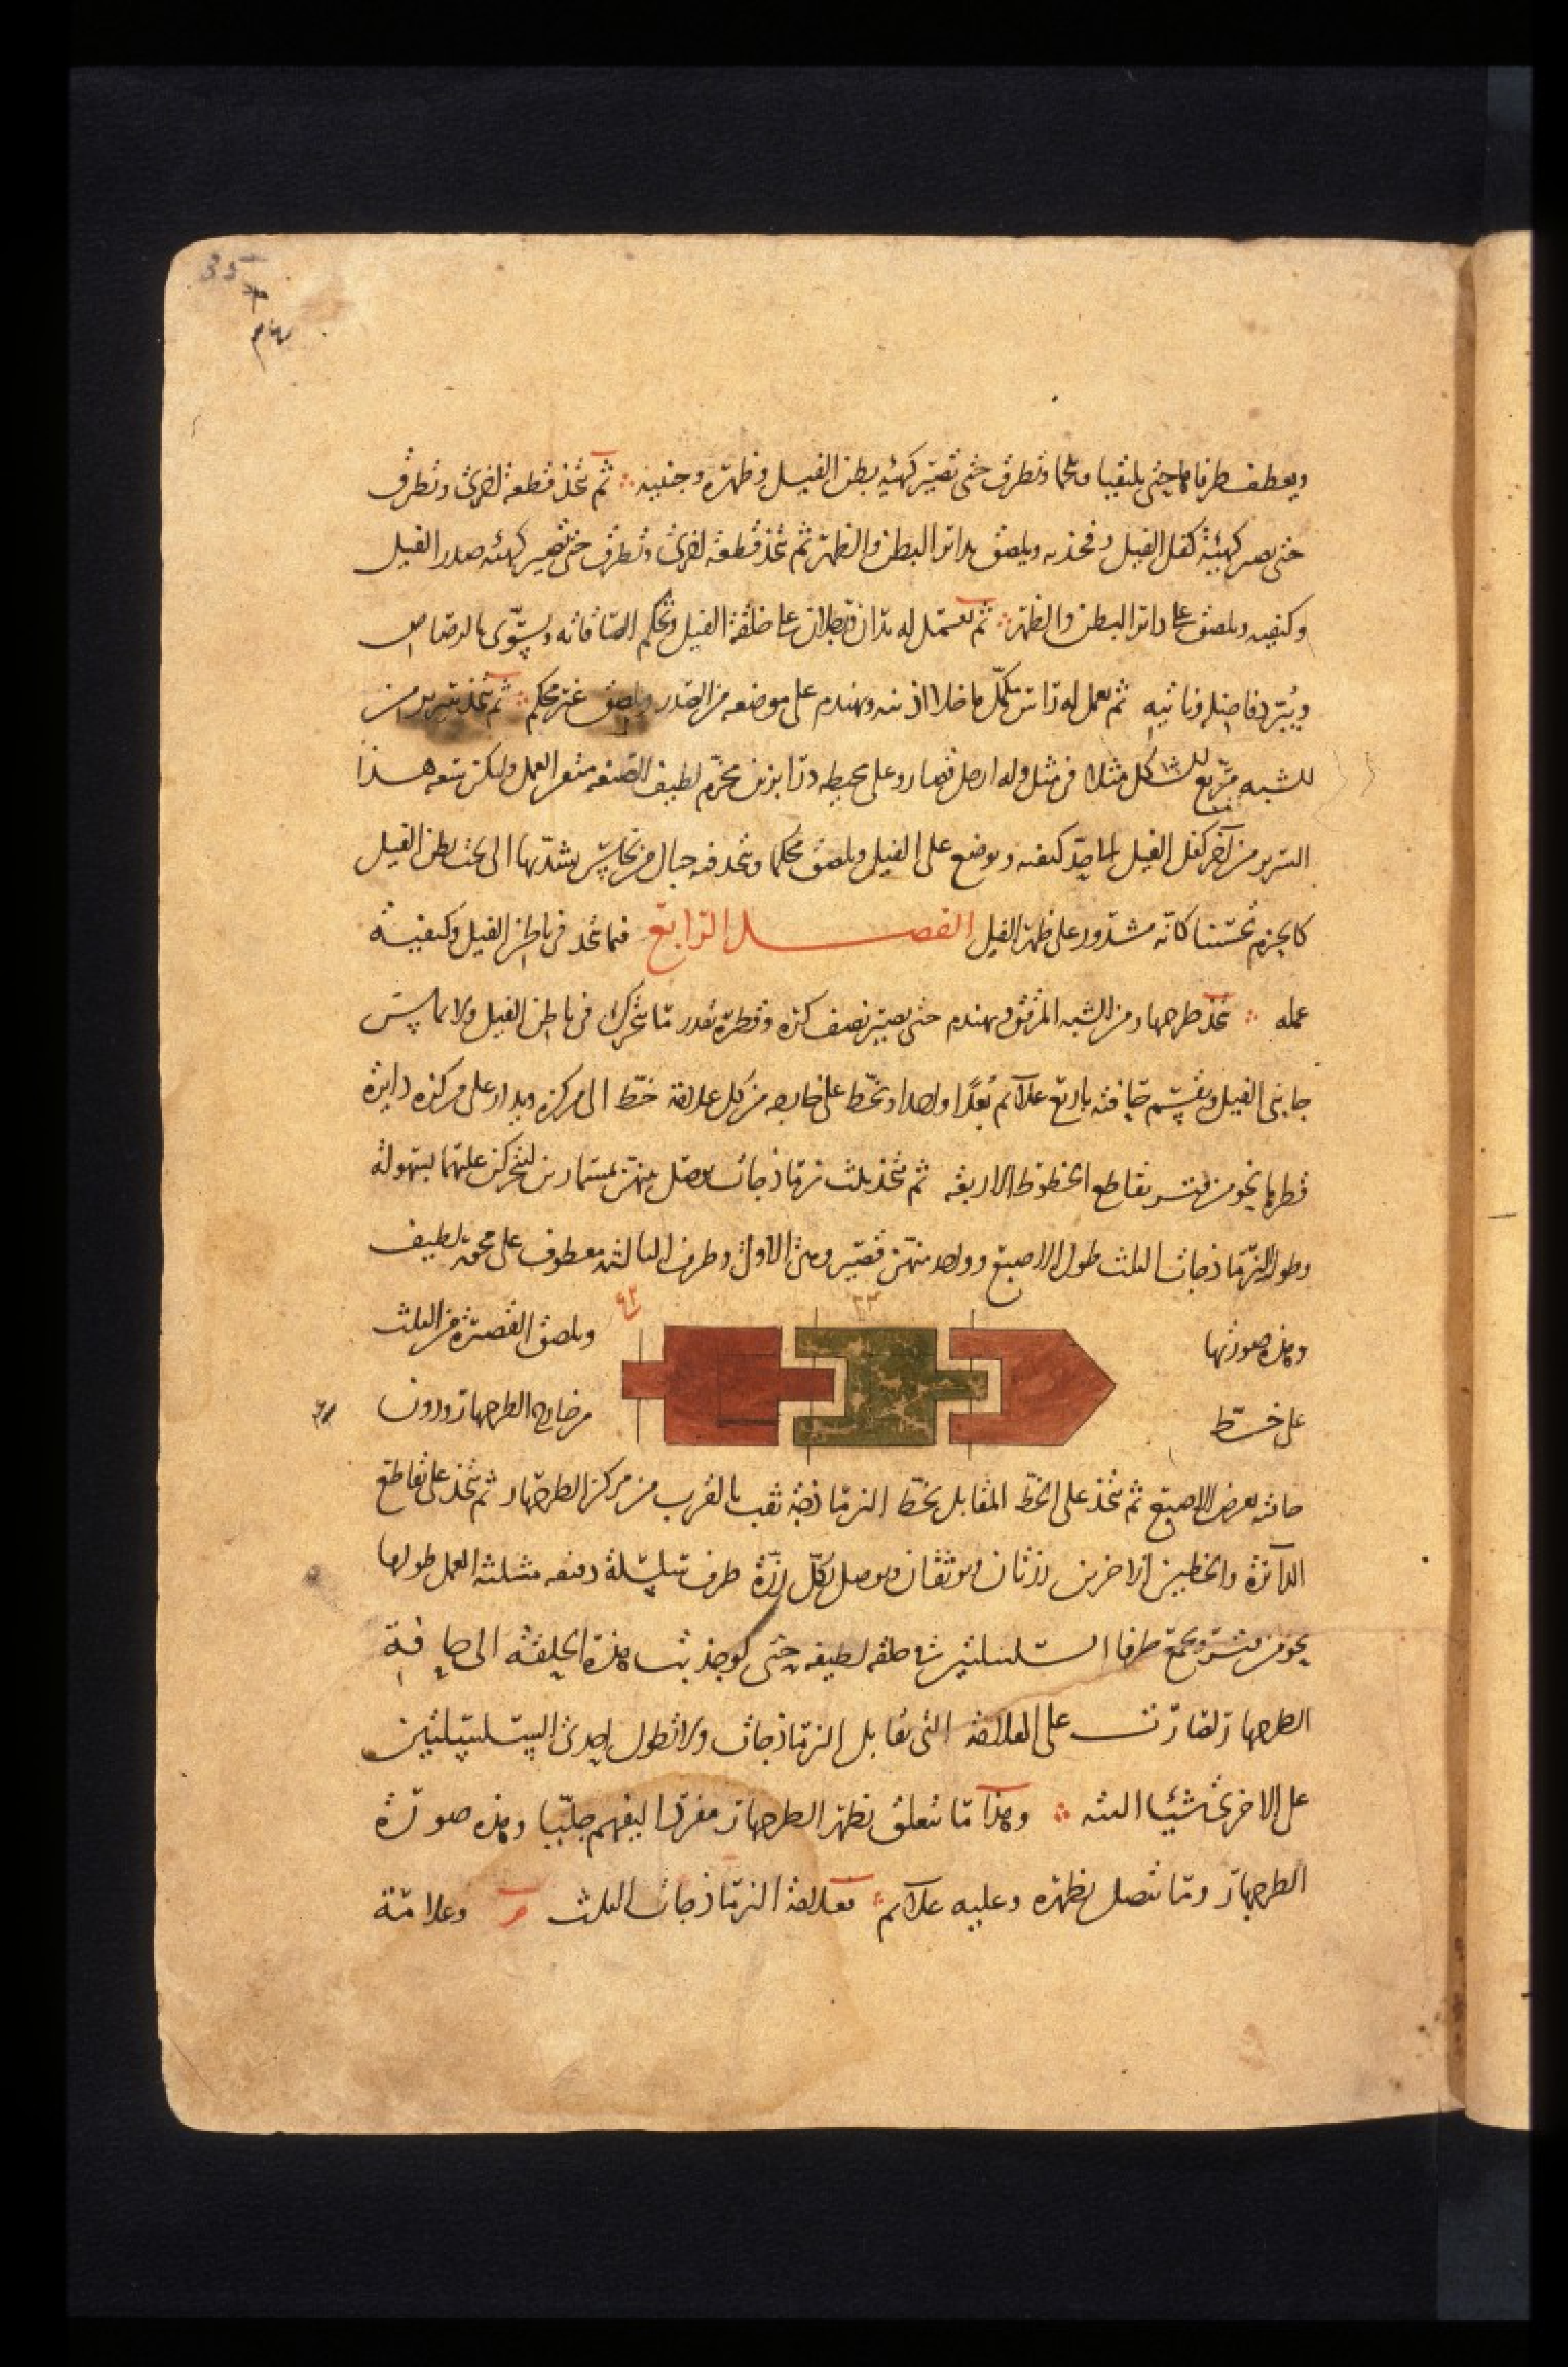 35
٣٤
ويعطف طرفاها حتى يلتقيا ويلحما وتطرق حتى تصير كهيئة بطن الفيل وظهره وجنبيه ثم تتخذ قطعة اخرى وتطرق
حتى يصير كهيئة كفل الفيل وفخذيه ويلصق بدائر البطن والظهر ثم تتخذ قطعة اخرى وتطرق حتى تصير كهيئة صدر الفيل
وكتفيه ويلصق على دائر البطن والظهر ثم يعمل له يدان ورجلان على خلقة الفيل وتحكم الصاقاته ويسوى بالرصاص
ويبرد فاضله ونابيه ثم يعمل له راس مكمل ما خلا اذنيه ويهندم على موضعه من الصدر ويلصق غير محكم ثم يتخذ سرير من
الشبه مربع الشكل مثلا في مثل وله ارجل قصار وعلى محيطه درابزين مخرم لطيف الصنعة متقن العمل وليكن سعة هذا
السرير من آخر كفل الفيل الى حد كتفيه ويوضع على الفيل ويلصق محكما وتتخذ فيه حبال من نحاس يشد بها الى تحت بطن الفيل
كالحزم تحسينا كانه مشدود على ظهر الفيل الفصل الرابع فيما يتخذ في باطن الفيل وكيفية
عمله تتخذ طرجهار من الشبه المرقق ويهندم حتى يصير نصف كرة وقطره بقدر ما يتحرك في باطن الفيل ولا يماس
جانبي الفيل ويقسم حافته باربع علائم بعدا واحدا ويخط على خارجه من كل علامة خط الى مركزه ويدار على مركزه دائرة
قطرها نحو من فتر بقاطع الخطوط الاربعة ثم تتخذ ثلث نرماذجات يوصل بينهن بمسمارين ليتحركن عليهما بسهولة
وطول النرماذجات الثلث طول الاصبع وواحد منهن قصير وهي الاولى وطرف الثالثة معطوف على محور لطيف
وهذه صورتها
ويلصق القصيرة من الثلث
على خط
من خارج الطرجهار ودون
حافته بعرض الاصبع ثم يتخذ على الخط المقابل لخط النرماذجة ثقب بالقرب من مركز الطرجهار ثم يتخذ على تقاطع
الدائرة والخطين الاخرين رزتان وتوثقان ويوصل بكل رزة طرف سلسلة دقيقة مثلثة العمل طولها
نحو من شبر ويجمع طرفا السلسلتين في حلقة لطيفة حتى لو جذبت هذه الحلقة الى حافة
الطرجهار لقارنت على العلامة التي تقابل النرماذجات ولا تطول احدى السلسلتين
على الاخرى شيئا البتة وهذا ما يتعلق بظهر الطرجهار مفردا ليفهم جليا وهذه صورة
الطرجهار وما يتصل بظهره وعليه علائم فعلامة النرماذجات الثلث م وعلامة